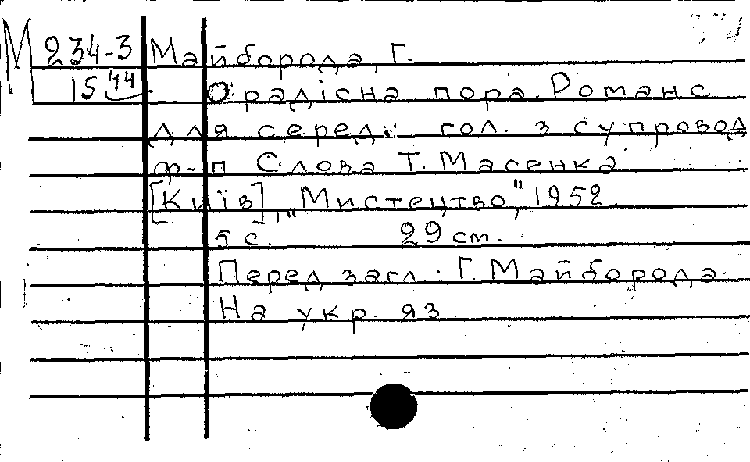 М 234-3 Майборода, Г.
15 44 О радісна пора. Романс
для серед. гол. з супровод
ф-п Слова Т. Масенка
[Київ], "Мистецтво", 1952
5 с. 29 см.
Перед загл.: Г. Майборода
На укр. яз